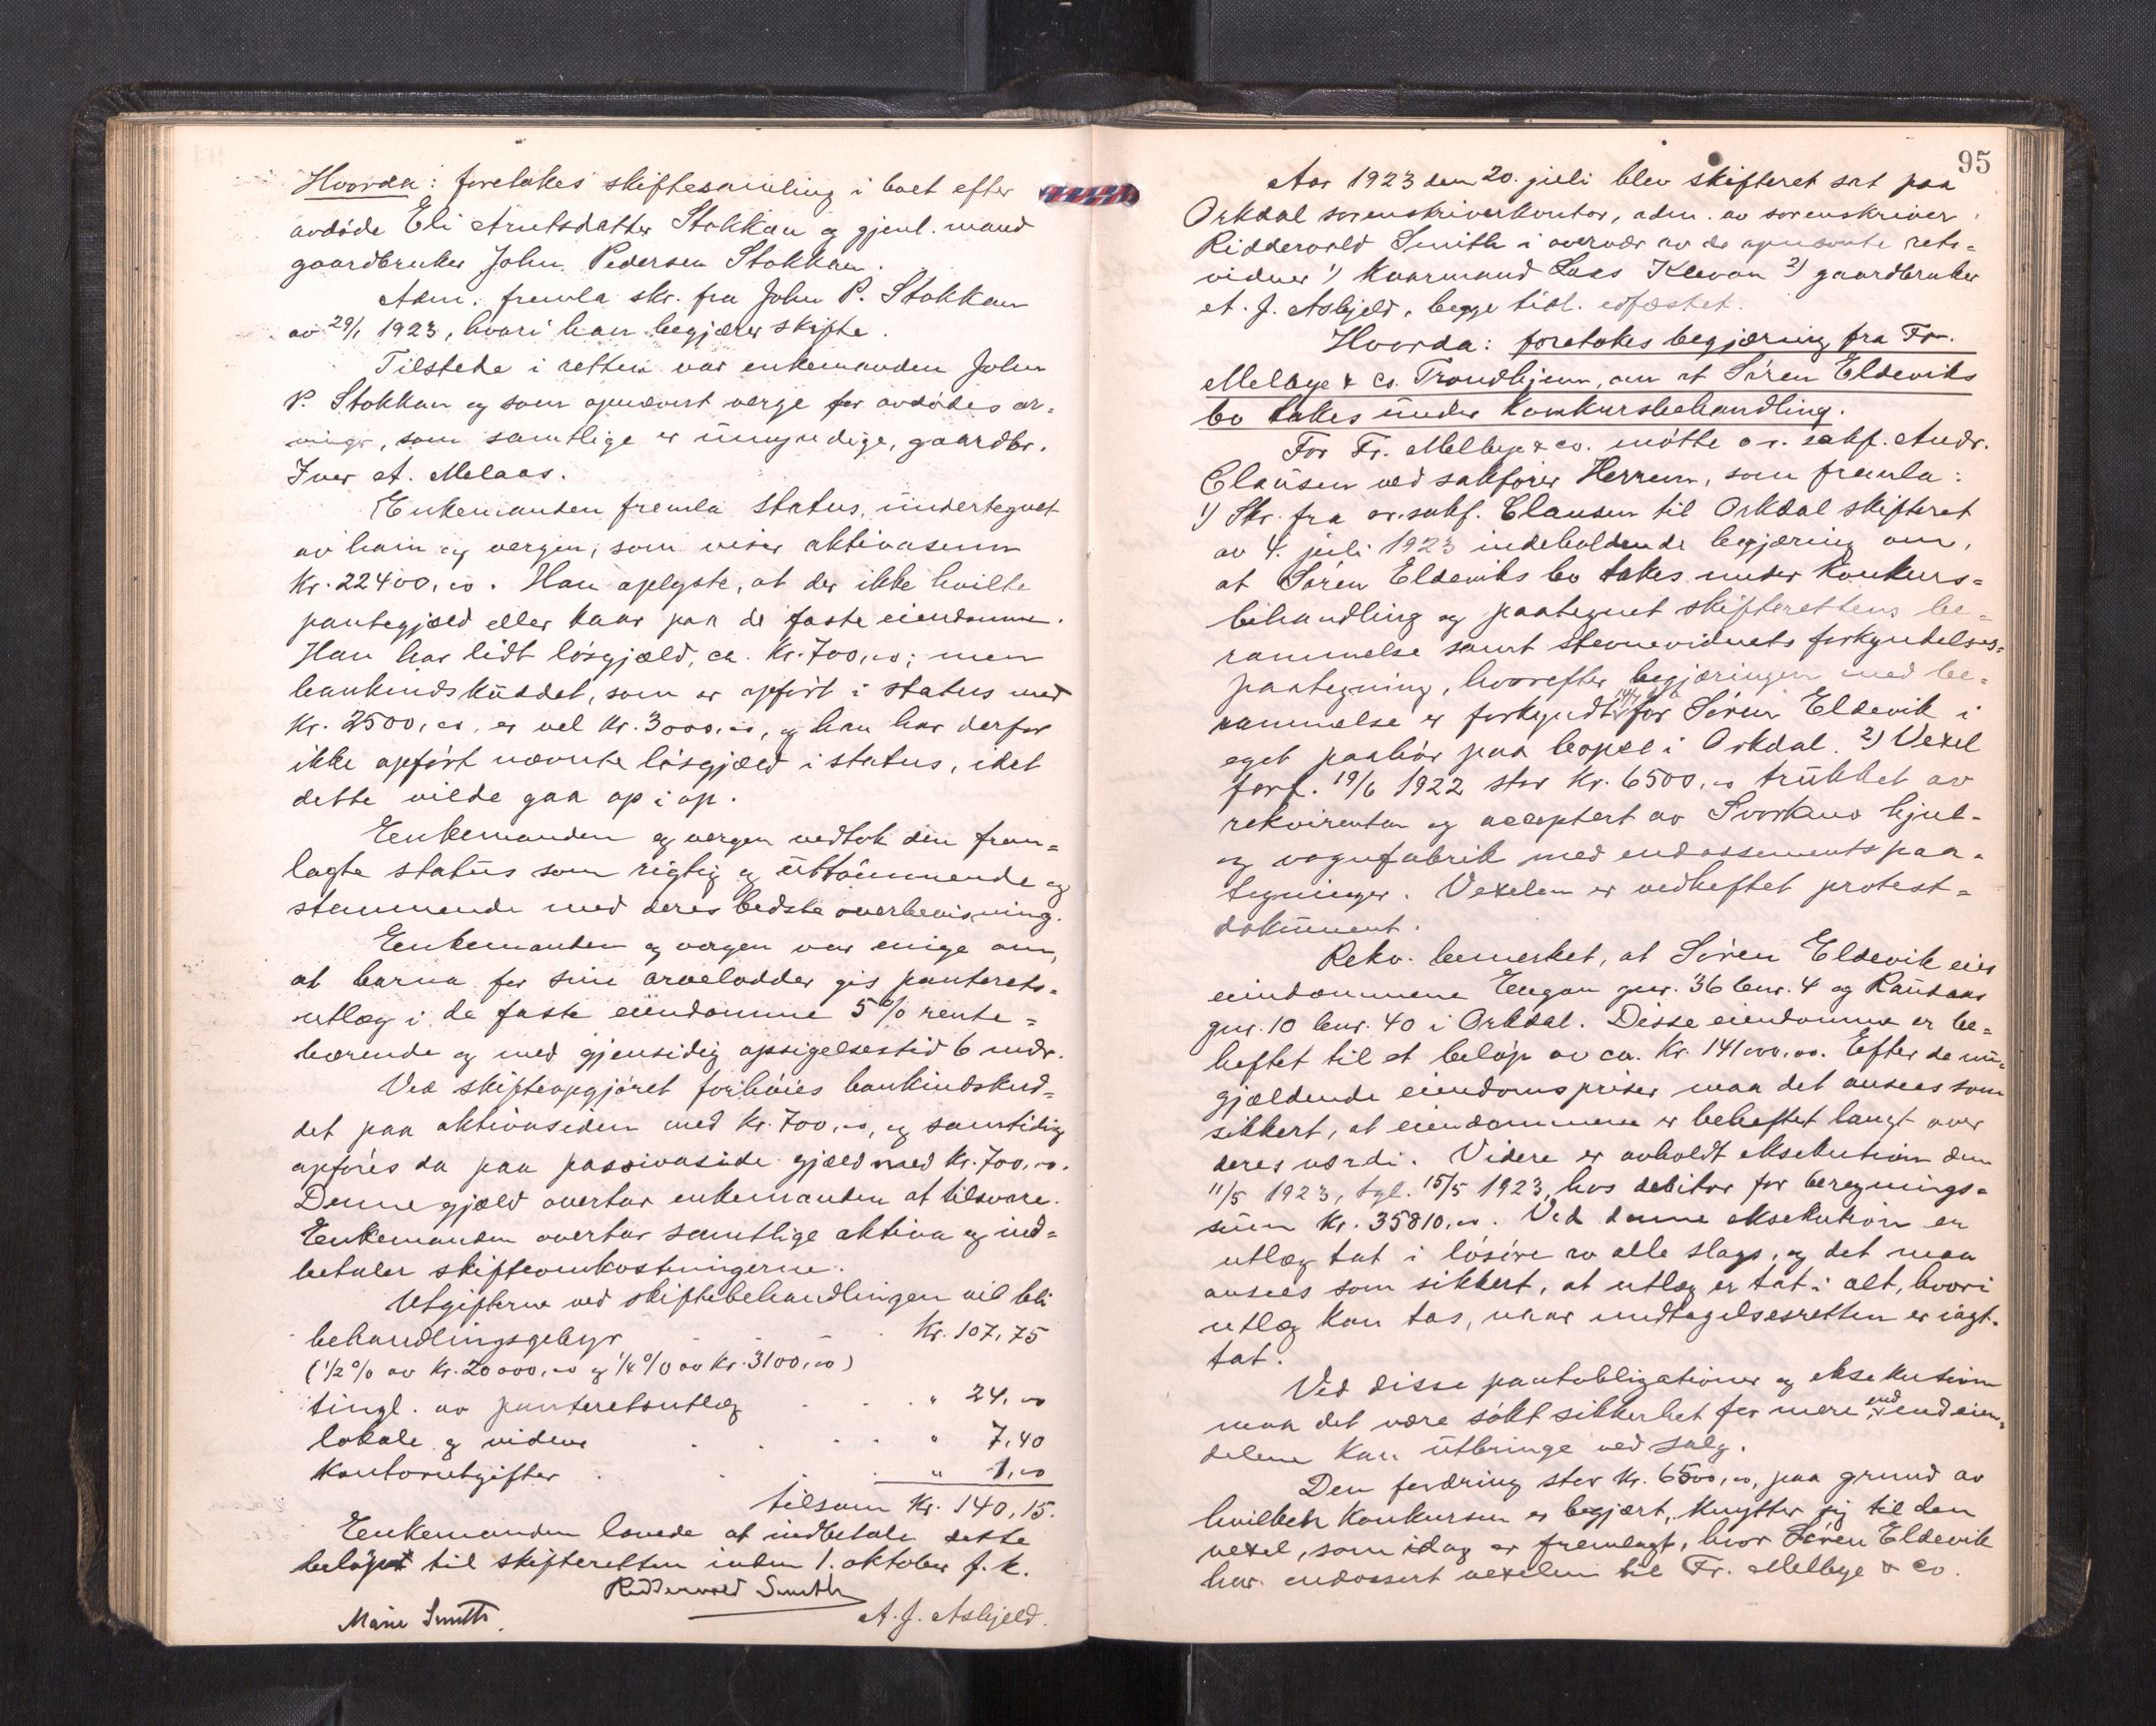 Hvorda: foretakes skiftesamling i boet efter
avdöde Eli Arntsdatter Stokkan og gjenl. mand
gaardbruker John Pedersen Stokkan.
Adm. fremla skr. fra John P. Stokkan
av 29/1 1923, hvori han begjærer skifte.
Tilstede i retten var enkemanden John
P. Stokkan og som opnævnt verge for avdödes ar-
vinger, som samtlige er umyndige, gaardbr.
Iver A. Melaas.
Enkemanden fremla status, undertegnet
av ham og vergen, som viser aktivasum
Kr. 22400,00. Han oplyste, at der ikke hvilte
pantegjæld eller kaar paa de faste eiendomme.
Han har lidt lösgjæld, ca. Kr. 700,00; men
bankindskuddet, som er opfört i status med
Kr. 2500,00, er vel Kr. 3000,00, og han har derfor
ikke opfört nævnte lösgjæld i status, idet
dette vilde gaa op i op.
Enkemanden og vergen vedtok den frem=
lagte status som rigtig og uttömmende og
stemmende med deres bedste overbevisning.
Enkemanden og vergen var enige om,
at barna for sine arvelodder gis panterets=
utlæg i de faste eiendomme 5% rente=
bærende og med gjensidig opsigelsestid 6 mdr.
Ved skifteopgjöret forhöies bankindskud=
det paa aktivasiden med Kr. 700,00, og samtidig
opföres da paa passivaside gjæld med Kr. 700,00.
Denne gjæld overtar enkemanden at tilsvare.
Enkemanden overtar samtlige aktiva og ind=
betaler skifteomkostningerne.
Utgifterne ved skiftebehandlingen vil bli
behandlingsgebyr Kr. 107,75
(1/2% av Kr. 20000,00 og 1/4% av Kr. 3100,00)
tingl. av panteretsutlæg " 24,00
lokale og vidner " 7,40
Kontorutgifter " 1,00
tilsam Kr. 140,15.
Enkemanden lovede at indbetale dette
belöp til skifteretten inden 1. oktober f. k.
Ridderwold Smith
Marie Smith.
A. J. Asbjeld.
95
Aar 1923 den 20. juli blev skifteret sat paa
Orkdal sorenskriverkontor, adm. av sorenskriver
Ridderwold Smith i overvær av de opnævnte rets=
vidner 1) kaarmand Lars Klevan 2) gaardbruker
A. J. Asbjeld, begge tidl. edfæstet.
Hvorda: foretakes begjæring fra Fr.
Melbye & Co. Trondhjem, om at Sören Eldeviks
bo takes under konkursbehandling.
For Fr. Melbye & co. mötte o.r. sakf. Andr.
Clausen ved sakförer Herrem, som fremla:
1) Skr. fra or. sakf. Clausen til Orkdal skifteret
av 4. juli 1923 indeholdende begjæring om,
at Sören Eldeviks bo takes under konkurs=
behandling og paategnet skifterettens be=
rammelse samt stevnevidnets forkyndelses=
paategning, hvorefter begjæringen med be=
rammelse er forkyndt 14/7 for Sören Eldevik i
eget paahör paa bopæl i Orkdal. 2) Vexel
forf. 19/6 1922 stor Kr. 6500,00 trukket av
rekvirenten og acceptert av Svorkmo hjul-
og vognfabrik med endossementspaa-
tegninger. Vexelen er vedheftet protest=
dokument.
Rekv. bemerket, at Sören Eldevik eier
eiendommene Engan gnr. 36 bnr. 4 og Raudaas
gnr. 10 bnr. 40 i Orkdal. Disse eiendomme er be=
heftet til et belöp av ca. Kr. 141000,00. Efter de nu=
gjældende eiendomspriser maa det ansees som
sikkert, at eiendommene er beheftet langt over
deres værdi. Videre er avholdt eksekution den
11/5 1923, tgl. 15/5 1923, hos debitor for beregnings=
sum Kr. 35810,00. Ved denne eksekution er
utlæg tat i lösöre av alle slags, og det maa
ansees som sikkert, at utlæg er tat i alt, hvori
utlæg kan tas, naar undtagelsesretten er iagt-
tat.
Ved disse pantobligationer og eksekution
maa det være sökt sikkerhet for mere end eien=
delene kan utbringe ved salg.
Den fordring stor Kr. 6500,00, paa grund av
hvilken konkursen er begjært, knytter sig til den
vexel, som idag er fremlagt, hvor Sören Eldevik
har endossert vexelen til Fr. Melbye & Co.